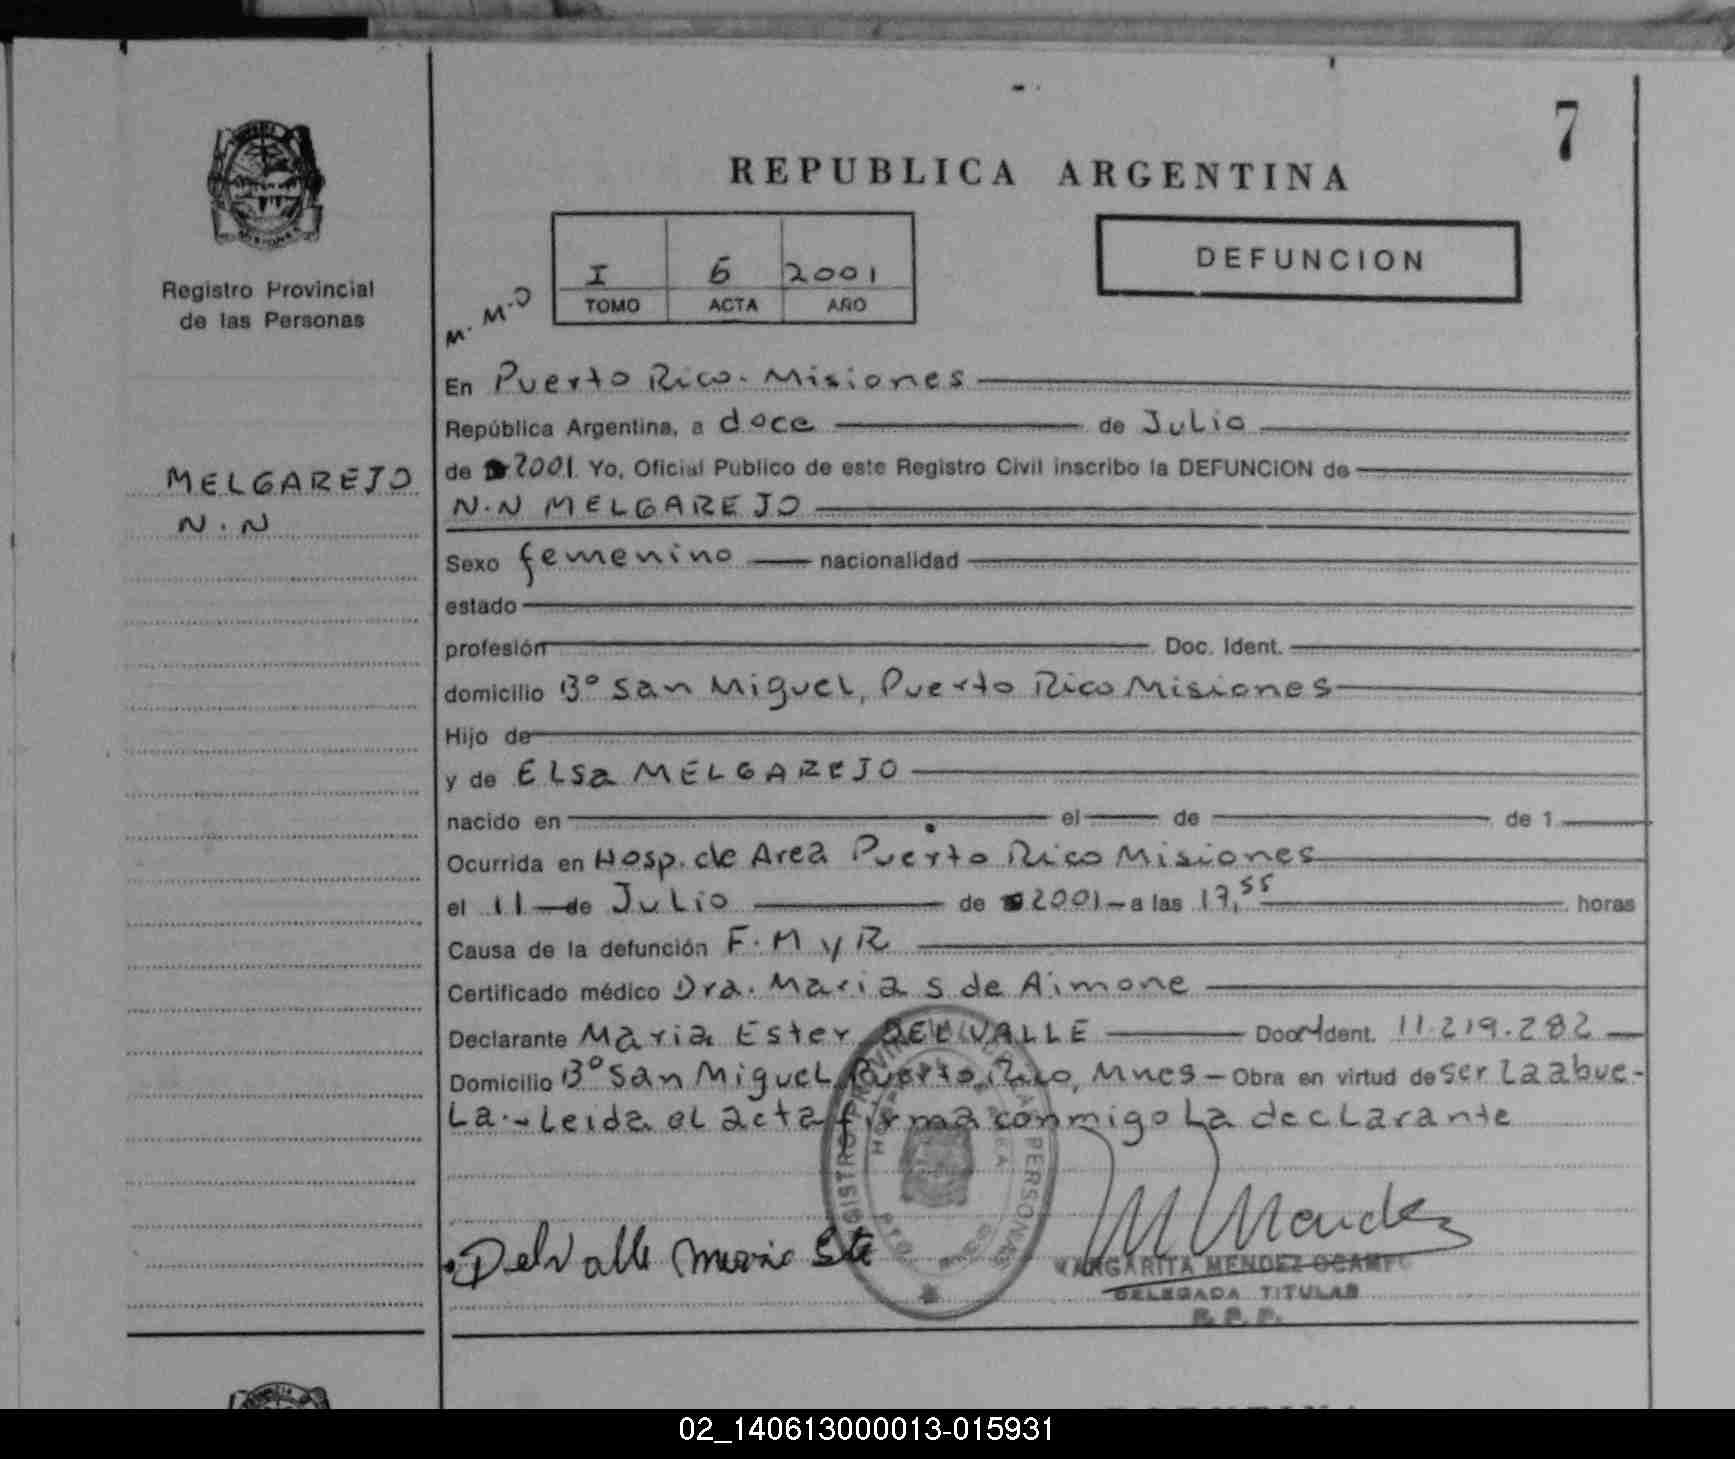 7
REPUBLICA ARGENTINA
DEFUNCION
I 6 2001
TOMO ACTA AÑO
Registro Provincial
de las Personas
M. M.O
MELGAREJO
N.N
En Puerto Rico. Misiones
República Argentina, a doce de Julio
de 2001. Yo, Oficial Público de este Registro Civil inscribo la DEFUNCION de
N.N MELGAREJO
Sexo femenino nacionalidad
estado
profesión Doc. Ident.
domicilio Bº San Miguel, Puerto Rico Misiones
Hijo de
y de ELSa MELGAREJO
nacido en el de de 1
Ocurrida en Hosp. de Area Puerto Rico Misiones
el 11 de Julio de 2001 a las 17,55 horas
Causa de la defunción F.M y R
Certificado médico Dra. Maria S de Aimone
Declarante Maria Ester DEL VALLE Doc Ident. 11.219.282
Domicilio Bº San Miguel, Puerto Rico, Mnes - Obra en virtud de ser La abue-
La.- Leida el acta firma conmigo La declarante
Del Valle Maria
M Mendez
MARGARITA MENDEZ OCAMPO
DELEGADA TITULAR
R.P.P.
02_140613000013-015931